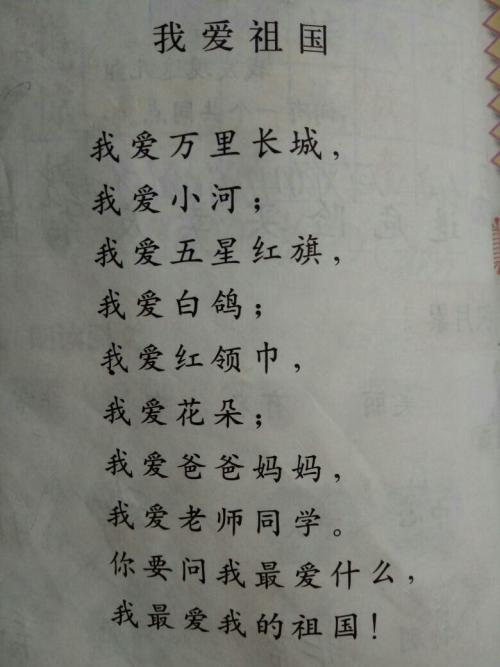 我爱祖国
我爱万里长城，
我爱小河；
我爱五星红旗，
我爱白鸽；
我爱红领巾，
我爱花朵；
我爱爸爸妈妈，
我爱老师同学。
你要问我最爱什么，
我最爱我的祖国！